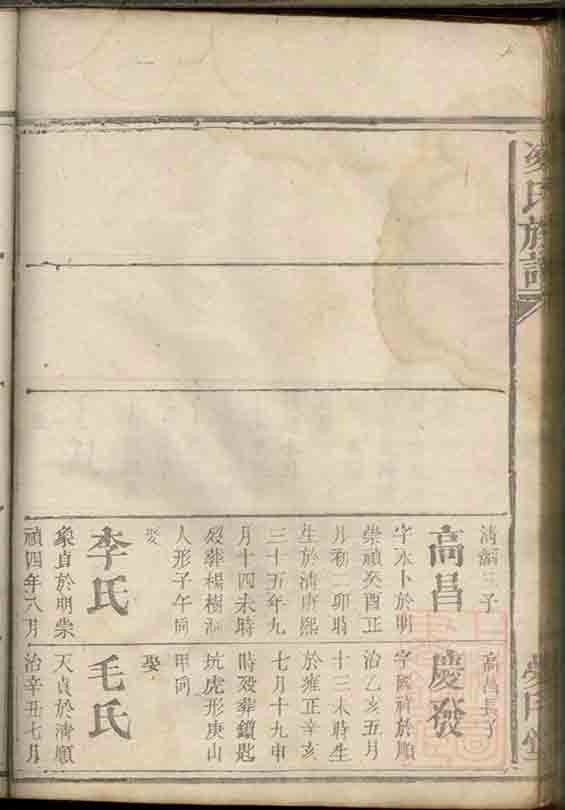 凌氏族譜
高昌
字永卜於明
崇禎癸酉正
月初二卯時
生於清康熙
三十五年九
月十四未時
歿葬楊樹
人形子午向
娶
李氏
於明崇
禎四年八月
高昌長子
慶發
字國祥於順
治乙亥五月
十三未時生
於雍正辛亥
七月十九申
時歿葬鎖匙
坑虎形庚山
甲向
娶
毛氏
於清順
治辛丑七月